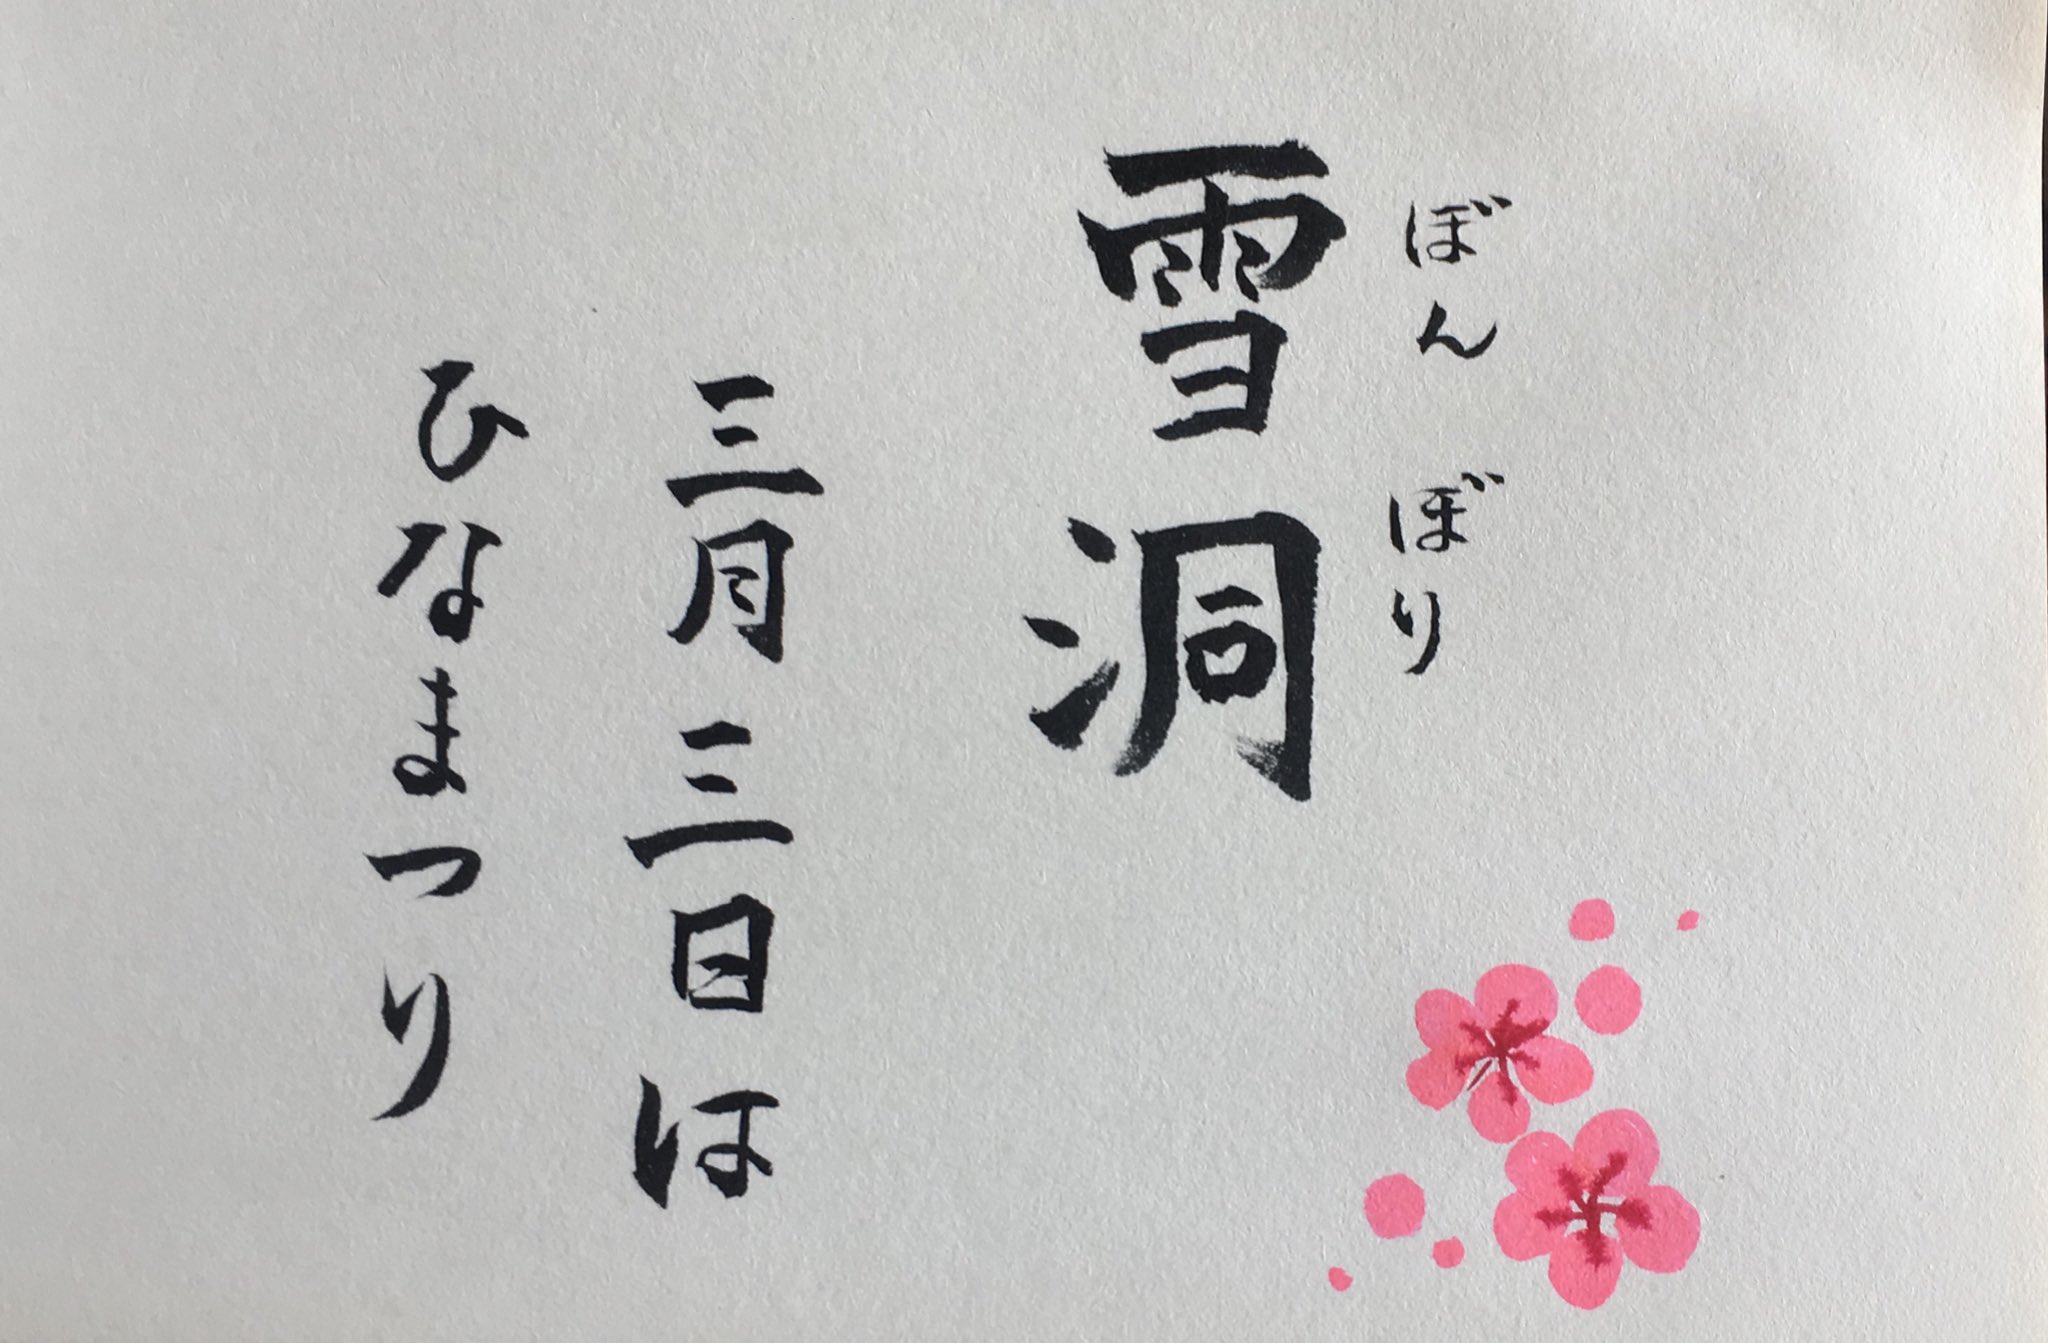 ぼんぼり
雪洞
三月三日は
ひなまつり